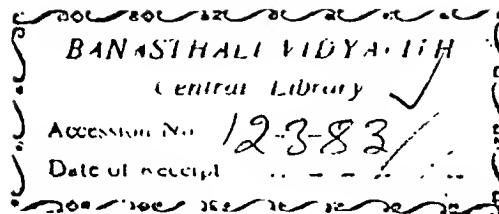 BANASTHALI VIDYAPITH
Central Library
Accession No 12383
Date of Receipt